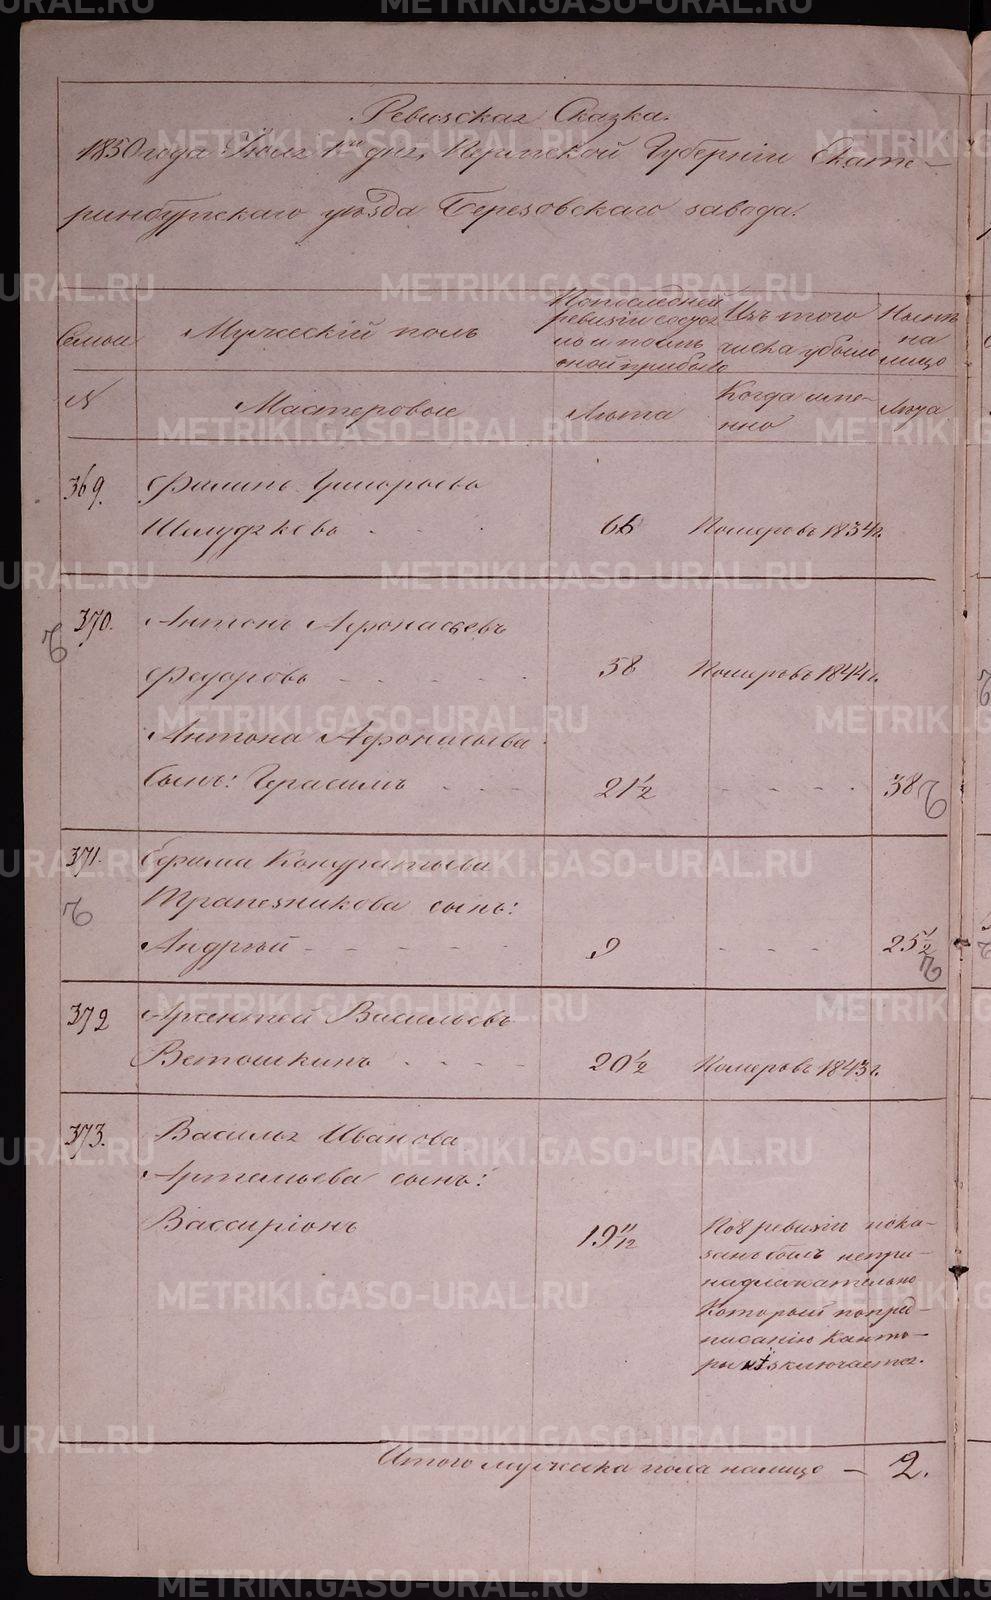 Ревизская Сказка.
1850 года Июля 1го дня, Пермской Губернiи Екате-
ринбургскаго уѣзда Березовскаго завода.
Семьи
Мужескiй полъ
По последней
ревизiи состоя
ло и после
оной прибыло
Изъ того
числа убыло
Нынѣ
на
лицо
N
Мастеровые
Лѣта
Когда имя-
нно
Лѣта
369.
Филипъ Григорьевъ
Шелудяковъ
66
Померъ въ 1834 г.
370.
Антонъ Афонасьевъ
Федоровъ
58
Померъ въ 1844 г.
Антона Афонасьева
Сынъ: Герасимъ
21 1/2
38
371.
Ефима Кондратьева
Трапезникова сынъ:
Андрей
9
25 1/2
372
Арсентей Васильевъ
Ветошкинъ
20 1/2
Померъ въ 1843 г.
373.
Василья Иванова
Артемьева сынъ:
Виссарiонъ
19 11/12
По 8 ревизiи пока-
занъ былъ непри-
надлежательно
Который попред-
писанiю канто-
ры изключается.
Итого мужеска пола налицо — 2.
METRIKI.GASO-URAL.RU